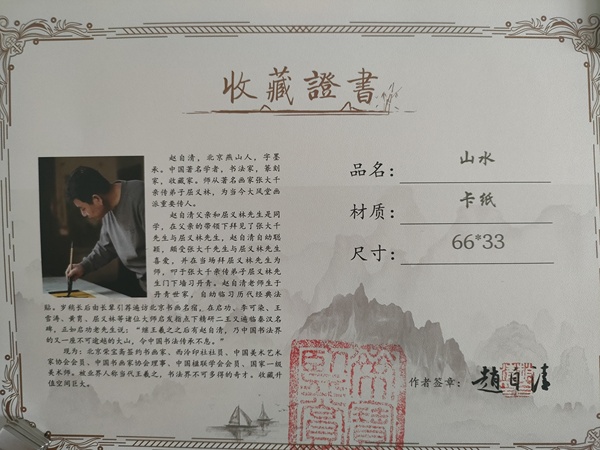 收藏證書
赵自清，北京燕山人，字墨
承。中国著名学者，书法家，篆刻
家，收藏家。师从著名画家张大千
亲传弟子屈义林，为当今大风堂画
派重要传人。
赵自清父亲和屈义林先生是同
学，在父亲的带领下拜见了张大千
先生与屈义林先生，赵自清自幼聪
颖，颇受张大千先生与屈义林先生
喜爱，并在当场拜屈义林先生为
师，叩于张大千亲传弟子屈义林先
生门下墙习丹青。赵自清老师生于
丹青世家，自幼临习历代经典法
贴。岁稍长后由长辈引荐遍访北京书画名宿，在启功、李可染、王
雪涛、黄胄、屈义林等诸位大师启发指点下精研二王又遍临秦汉名
碑，正如启功老先生说：“继王羲之之后有赵自清，乃中国书法界
的又一座不可逾越的大山，令中国书法传承不息。”
现为：北京荣宝斋签约书画家，西泠印社社员，中国美术艺术
家协会会员，中国书画家协会理事，中国楹联学会会员，国家一级
美术师。被业界人称当代王羲之，书法界不可多得的奇才。收藏升
值空间巨大。
品名：山水
材质：卡纸
尺寸：66*33
作者签章：趙自清